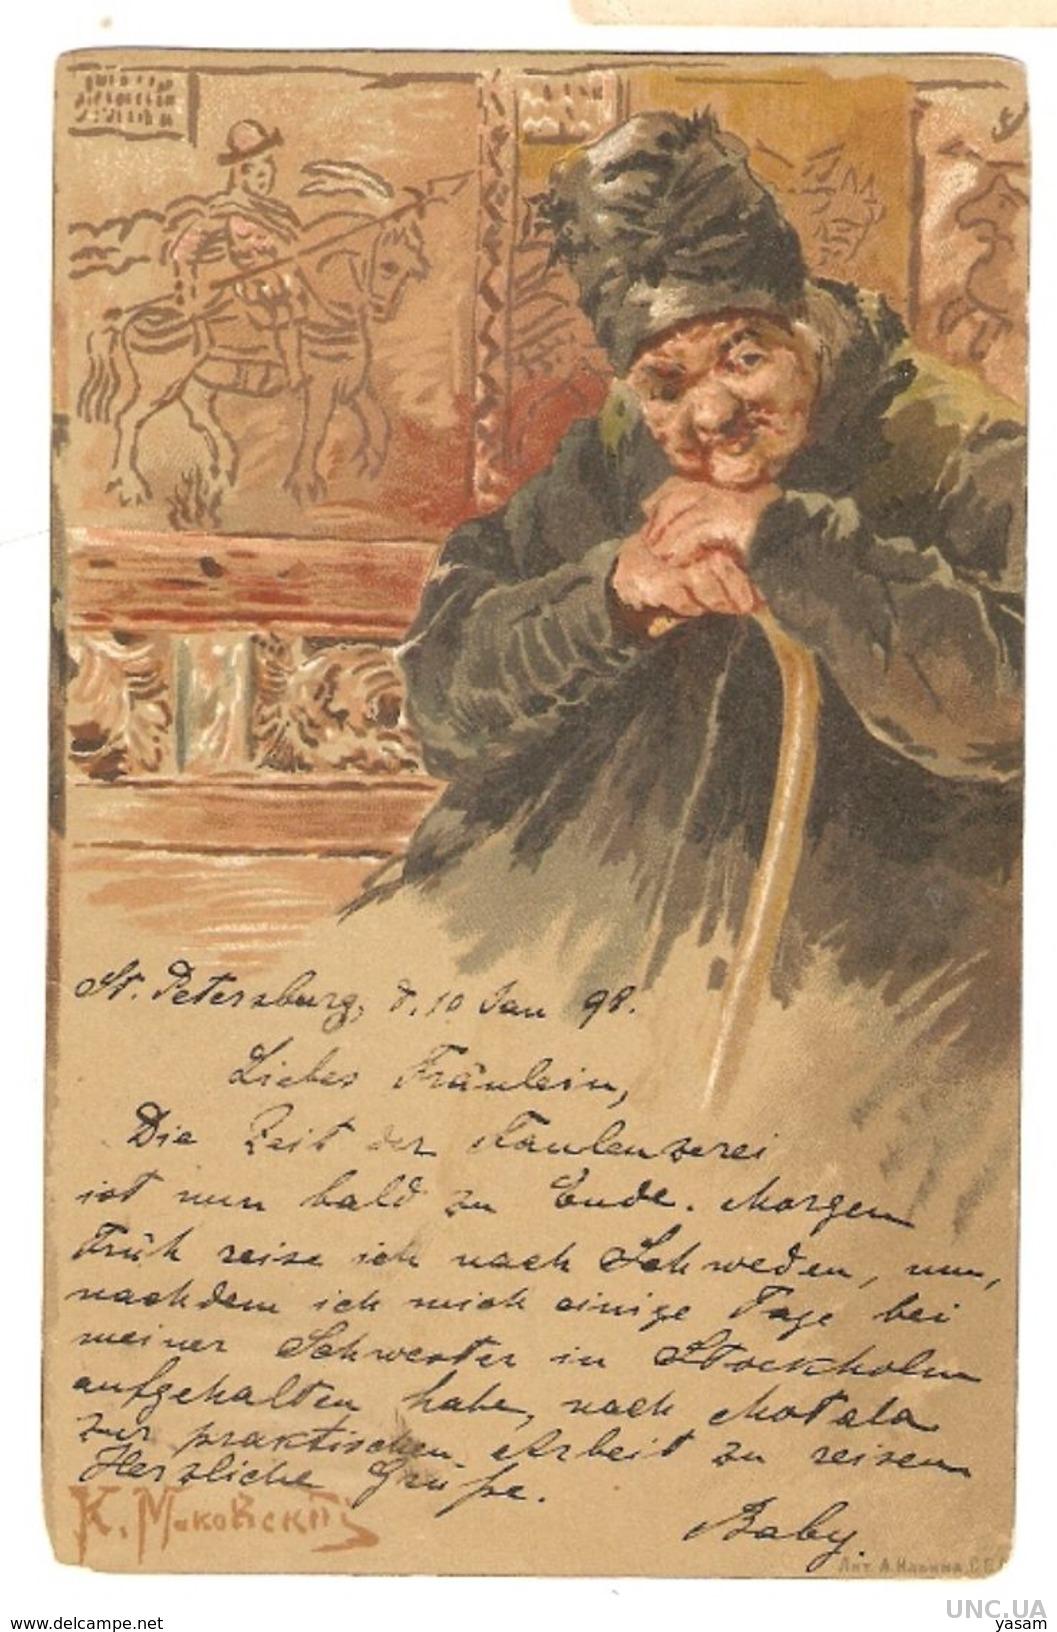 St. Petersburg, d. 10 Jan 98.
Liebes Fräulein,
Die Zeit der Faulenzerei
ist nun bald zu Ende. Morgen
Früh reise ich nach Schweden, um,
nachdem ich mich einige Tage bei
meiner Schwester in Stockholm
aufgehalten habe, nach Motala
zur praktischen Arbeit zu reisen
Herzliche Grüße.
Baby.
К. Маковскій
Лит. А. Ильина, С.П.
UNC.UA
www.delcampe.net
yasam